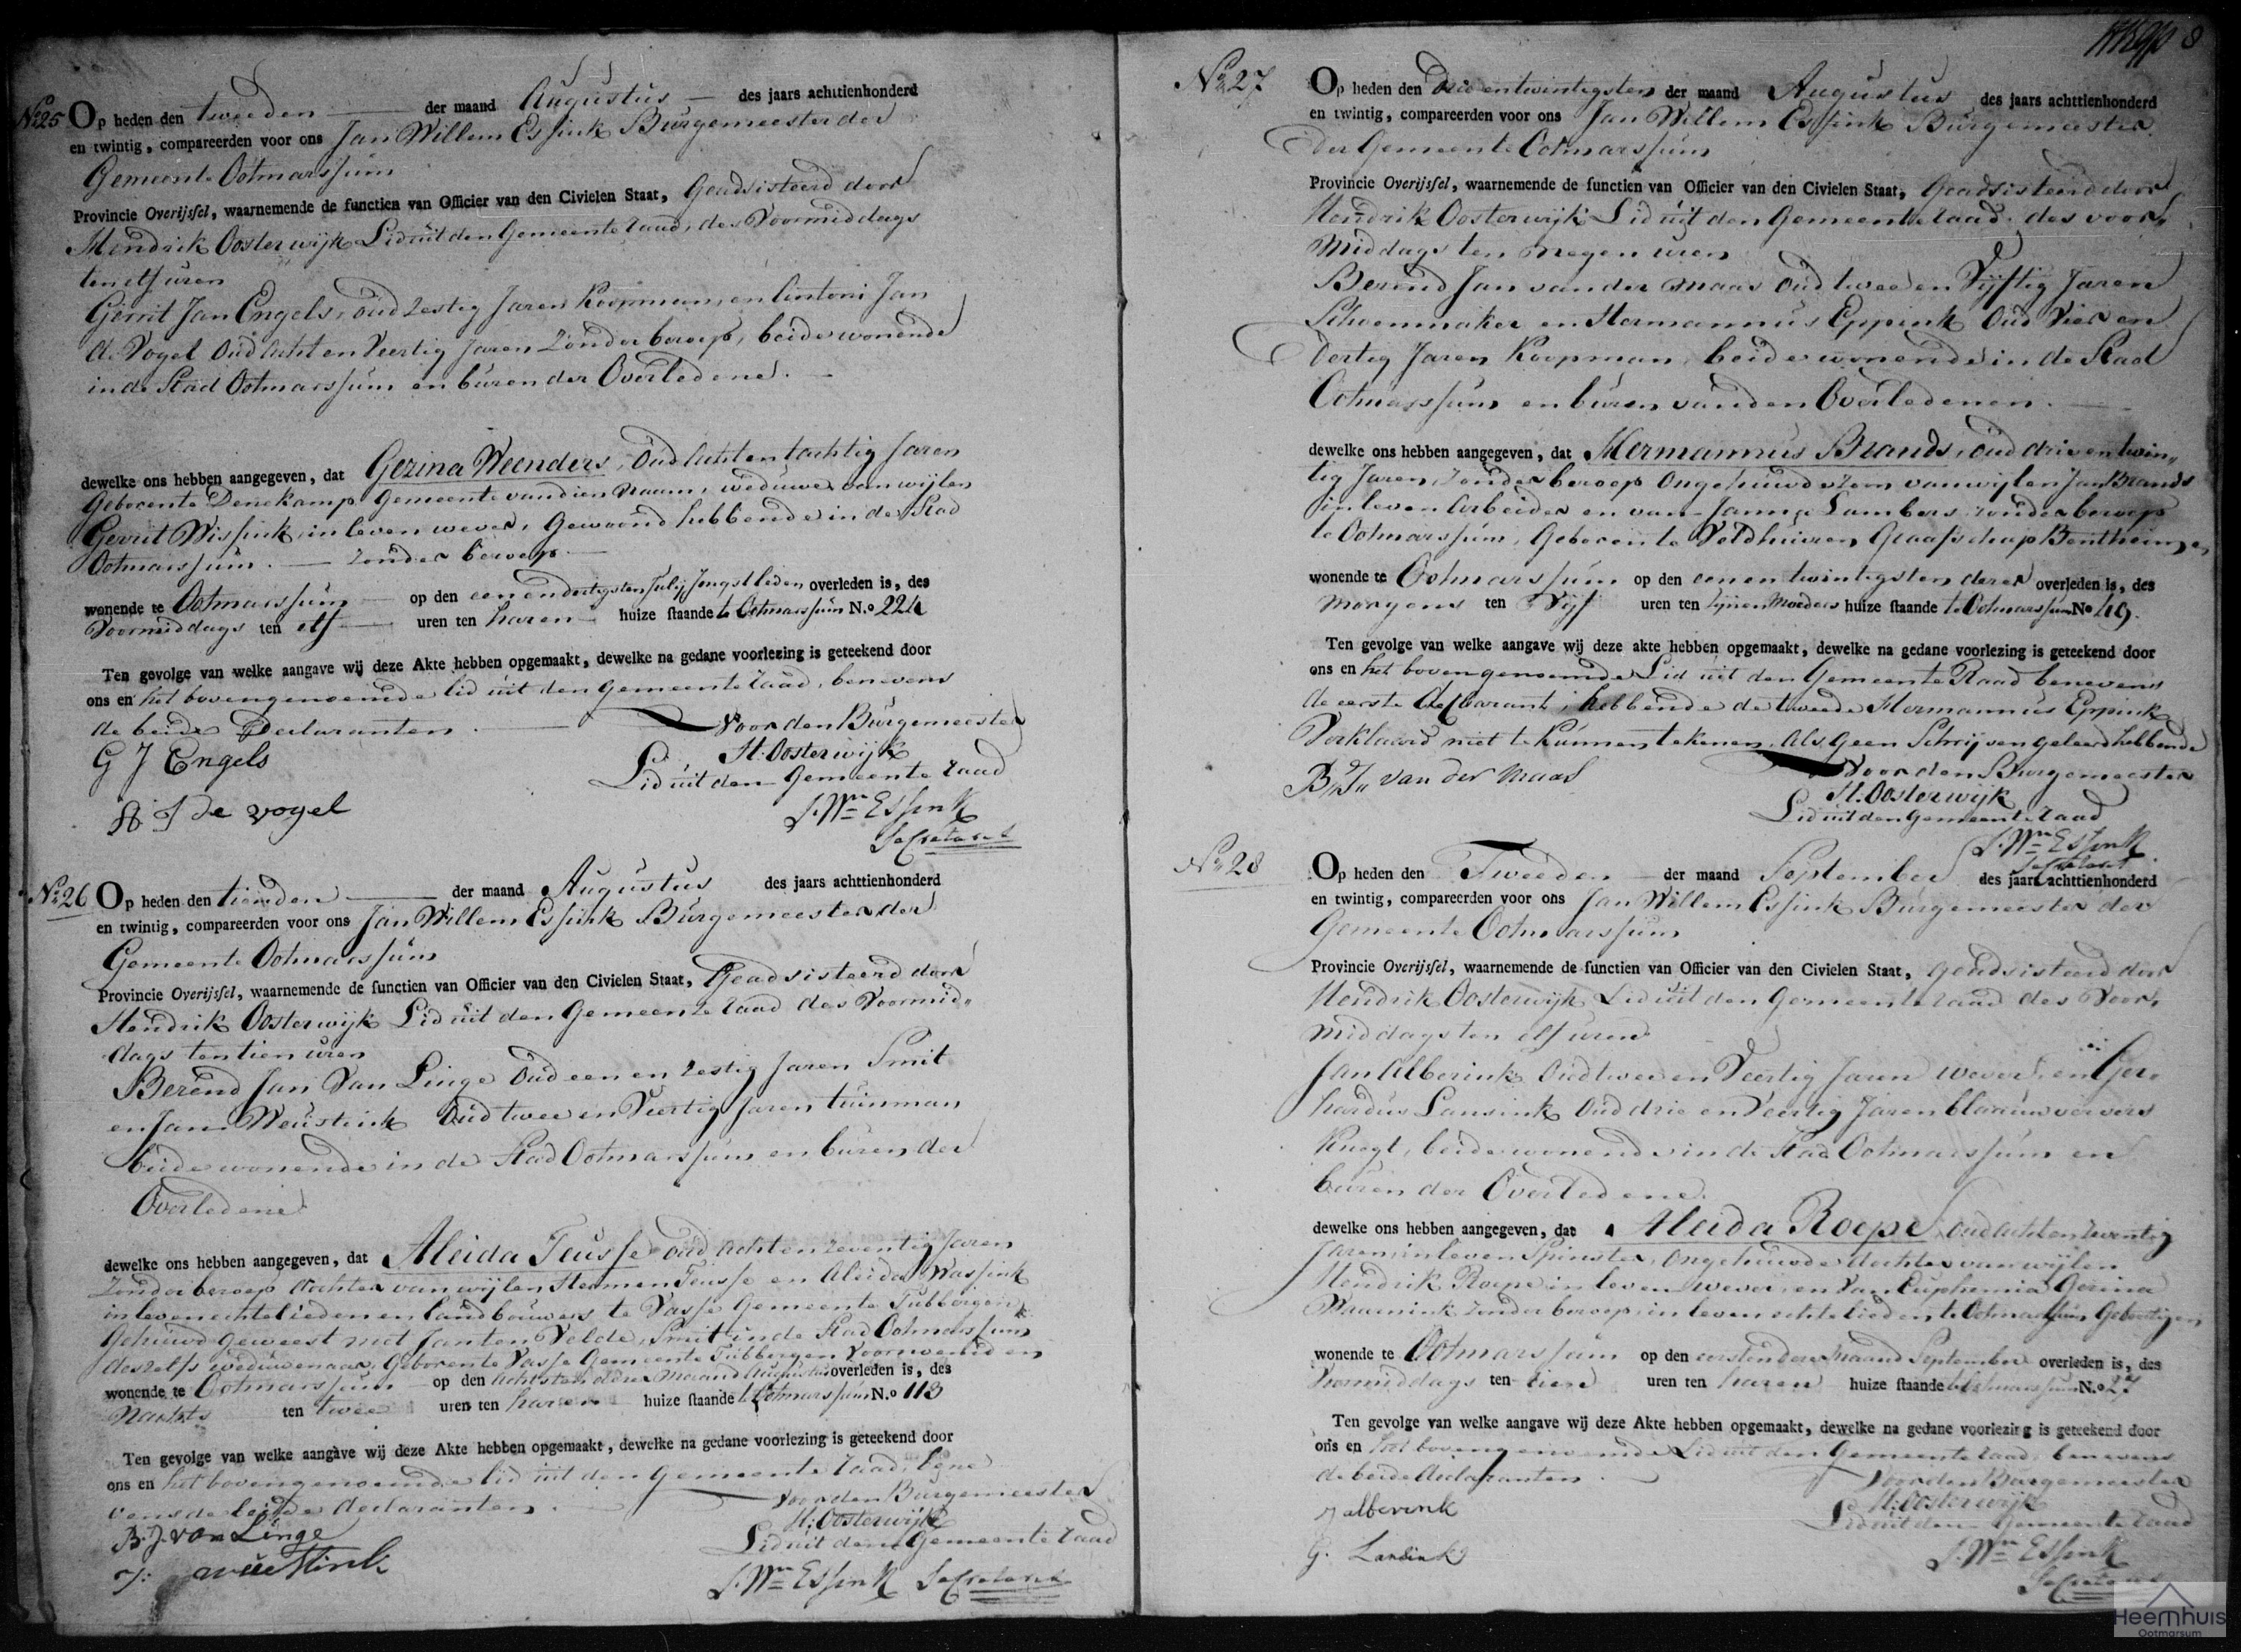 No 25 Op heden den tweeden der maand Augustus des jaars achttienhonderd
en twintig, compareerden voor ons Jan Willem Essink Burgemeester der
Gemeente Ootmarssum
Provincie Overijssel, waarnemende de functien van Officier van den Civielen Staat, Geadsisteerd door
Hendrik Oosterwijk Lid uit den Gemeente raad, des Voormiddags
ten elf uren
Gerrit Jan Engels, oud zestig Jaren Koopman, en Antoni Jan
de Vogel Oud Acht en Veertig Jaren Zonder beroep, beide wonende
in de Stad Ootmarssum en buren der Overledene.
dewelke ons hebben aangegeven, dat Gezina Weenders, Oud Acht en tachtig Jaren
Geboren te Denekamp Gemeente van dien Naam, weduwe van wijlen
Gerrit Wissink, in leven wever, Gewoond hebbende in de Stad
Ootmarssum. zonder beroep
wonende te Ootmarssum op den een en dertigsten Julij Jongstleden overleden is, des
Voormiddags ten elf uren ten haren huize staande te Ootmarssum N.o 224
Ten gevolge van welke aangave wij deze Akte hebben opgemaakt, dewelke na gedane voorlezing is geteekend door
ons en het bovengenoemde lid uit den Gemeente raad, benevens
de beide Declaranten. Voor den Burgemeester
G J Engels H. Oosterwijk
Lid uit den Gemeente raad
A J de vogel J. Wm Essink
Secretaris
No 26 Op heden den tienden der maand Augustus des jaars achttienhonderd
en twintig, compareerden voor ons Jan Willem Essink Burgemeester der
Gemeente Ootmarssum
Provincie Overijssel, waarnemende de functien van Officier van den Civielen Staat, Geadsisteerd door
Hendrik Oosterwijk Lid uit den Gemeente raad des Voormid„
dags ten tien uren
Berend Jan Van Linge Oud een en zestig Jaren Smit
en Jan Weustink Oud twee en Veertig Jaren tuinman
beide wonende in de Stad Ootmarssum en buren der
Overledene
dewelke ons hebben aangegeven, dat Aleida Teusse oud acht en zeventig Jaren
Zonder beroep dochter van wijlen Hermen Teusse en Aleida Wassink
in leven echtelieden en landbouwers te Vasse Gemeente Tubbergen,
Gehuwd geweest met Jan ten Velde, Smit in de Stad Ootmarssum
deszelfs weduwenaar, Geboren te Vasse Gemeente Tubbergen Voornoemd en
wonende te Ootmarssum op den achtsten dezer Maand Augustus overleden is, des
Nachts ten twee uren ten haren huize staande te Ootmarssum N.o 113
Ten gevolge van welke aangave wij deze Akte hebben opgemaakt, dewelke na gedane voorlezing is geteekend door
ons en het bovengenoemde lid uit den Gemeente raad, bene
vens de beide declaranten. Voor den Burgemeester
B. J. van Linge H: Oosterwijk
Lid uit den Gemeente raad
J: weustink J. Wm Essink Secretaris
No 27 Op heden den Drie en twintigsten der maand Augustus des jaars achttienhonderd
en twintig, compareerden voor ons Jan Willem Essink Burgemeester
der Gemeente Ootmarssum
Provincie Overijssel, waarnemende de functien van Officier van den Civielen Staat, Geadsisteerd door
Hendrik Oosterwijk Lid uit den Gemeente raad des voor„
middags ten Negen uren
Berend Jan van der Maas Oud twee en Vijftig Jaren
Schoenmaker en Hermannus Eppink Oud Vier en
Dertig Jaren Koopman, beide wonende in de Stad
Ootmarssum en buren van den Overledenen.
dewelke ons hebben aangegeven, dat Hermannus Brands, oud drie en twin„
tig Jaren, Zonder beroep Ongehuwde zoon van wijlen Jan Brands
in leven Arbeider en van Janna Lambers zonder beroep
te Ootmarssum, Geboren te Veldhuizen Graafschap Bentheim, en
wonende te Ootmarssum op den een en twintigsten dezer overleden is, des
Morgens ten Vijf uren ten zijnen Moeders huize staande te Ootmarssum No 49.
Ten gevolge van welke aangave wij deze akte hebben opgemaakt, dewelke na gedane voorlezing is geteekend door
ons en het bovengenoemde Lid uit den Gemeente Raad benevens
de eerste declarant, hebbende de tweede Hermannus Eppink
Verklaard niet te kunnen tekenen, als Geen Schrijven geleerd hebbende
B„J„ van der Maas Voor den Burgemeester
H. Oosterwijk
Lid uit den Gemeente raad
J. Wm Essink
Secretaris
No 28 Op heden den Tweeden der maand September des jaars achttienhonderd
en twintig, compareerden voor ons Jan Willem Essink Burgemeester der
Gemeente Ootmarssum
Provincie Overijssel, waarnemende de functien van Officier van den Civielen Staat, Geadsisteerd door
Hendrik Oosterwijk Lid uit den Gemeente raad des Voor„
middags ten elf uren
Jan Alberink Oud twee en Veertig Jaren wever, en Ger„
hardus Lansink Oud drie en Veertig Jaren blaauwververs
Knegt, beide wonende in de Stad Ootmarssum en
buren der Overledene.
dewelke ons hebben aangegeven, dat Aleida Roepe, oud acht en zeventig
Jaren, in leven Spinster, Ongehuwde dochter van wijlen
Hendrik Roepe in leven wever, en van Euphemia Gezina
zonder beroep, in leven echtelieden te Ootmarssum Geboortig en
wonende te Ootmarssum op den eersten dezer Maand September overleden is, des
Voormiddags ten tien uren ten haren huize staande te Ootmarssum N.o 27
Ten gevolge van welke aangave wij deze Akte hebben opgemaakt, dewelke na gedane voorlezing is geteekend door
ons en het bovengenoemde Lid uit den Gemeente raad, benevens
de beide declaranten. Voor den Burgemeester
J alberink H: Oosterwijk
Lid uit den Gemeente raad
G. Lansink J. Wm Essink
Secretaris
Heemhuis
Ootmarsum